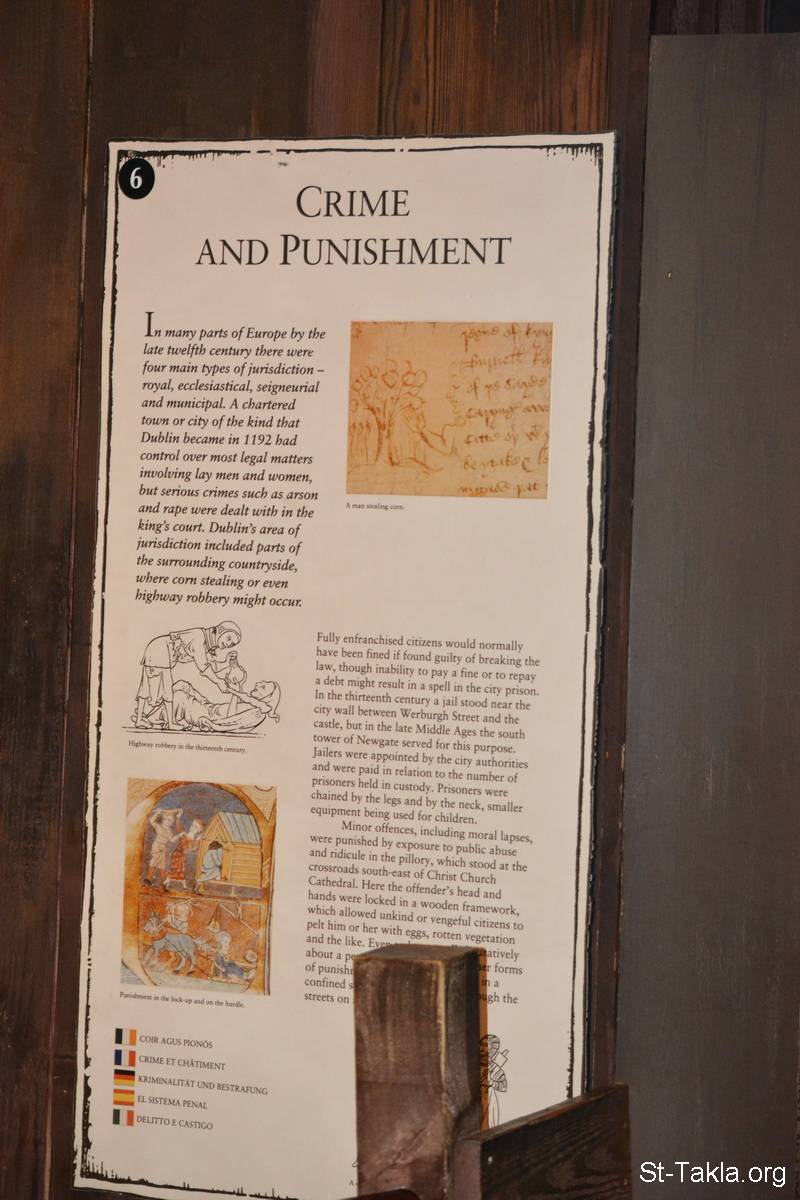 6
CRIME
AND PUNISHMENT
In many parts of Europe by the
late twelfth century there were
four main types of jurisdiction –
royal, ecclesiastical, seigneurial
and municipal. A chartered
town or city of the kind that
Dublin became in 1192 had
control over most legal matters
involving lay men and women,
but serious crimes such as arson
and rape were dealt with in the
king's court. Dublin's area of
jurisdiction included parts of
the surrounding countryside,
where corn stealing or even
highway robbery might occur.
A man stealing corn.
Highway robbery in the thirteenth century.
Fully enfranchised citizens would normally
have been fined if found guilty of breaking the
law, though inability to pay a fine or to repay
a debt might result in a spell in the city prison.
In the thirteenth century a jail stood near the
city wall between Werburgh Street and the
castle, but in the late Middle Ages the south
tower of Newgate served for this purpose.
Jailers were appointed by the city authorities
and were paid in relation to the number of
prisoners held in custody. Prisoners were
chained by the legs and by the neck, smaller
equipment being used for children.
Minor offences, including moral lapses,
were punished by exposure to public abuse
and ridicule in the pillory, which stood at the
crossroads south-east of Christ Church
Cathedral. Here the offender's head and
hands were locked in a wooden framework,
which allowed unkind or vengeful citizens to
pelt him or her with eggs, rotten vegetation
and the like.
about a forms
of in a
confined the
streets on
Punishment in the lock-up and on the hurdle.
COIR AGUS PIONÓS
CRIME ET CHÂTIMENT
KRIMINALITÄT UND BESTRAFUNG
EL SISTEMA PENAL
DELITTO E CASTIGO
St-Takla.org